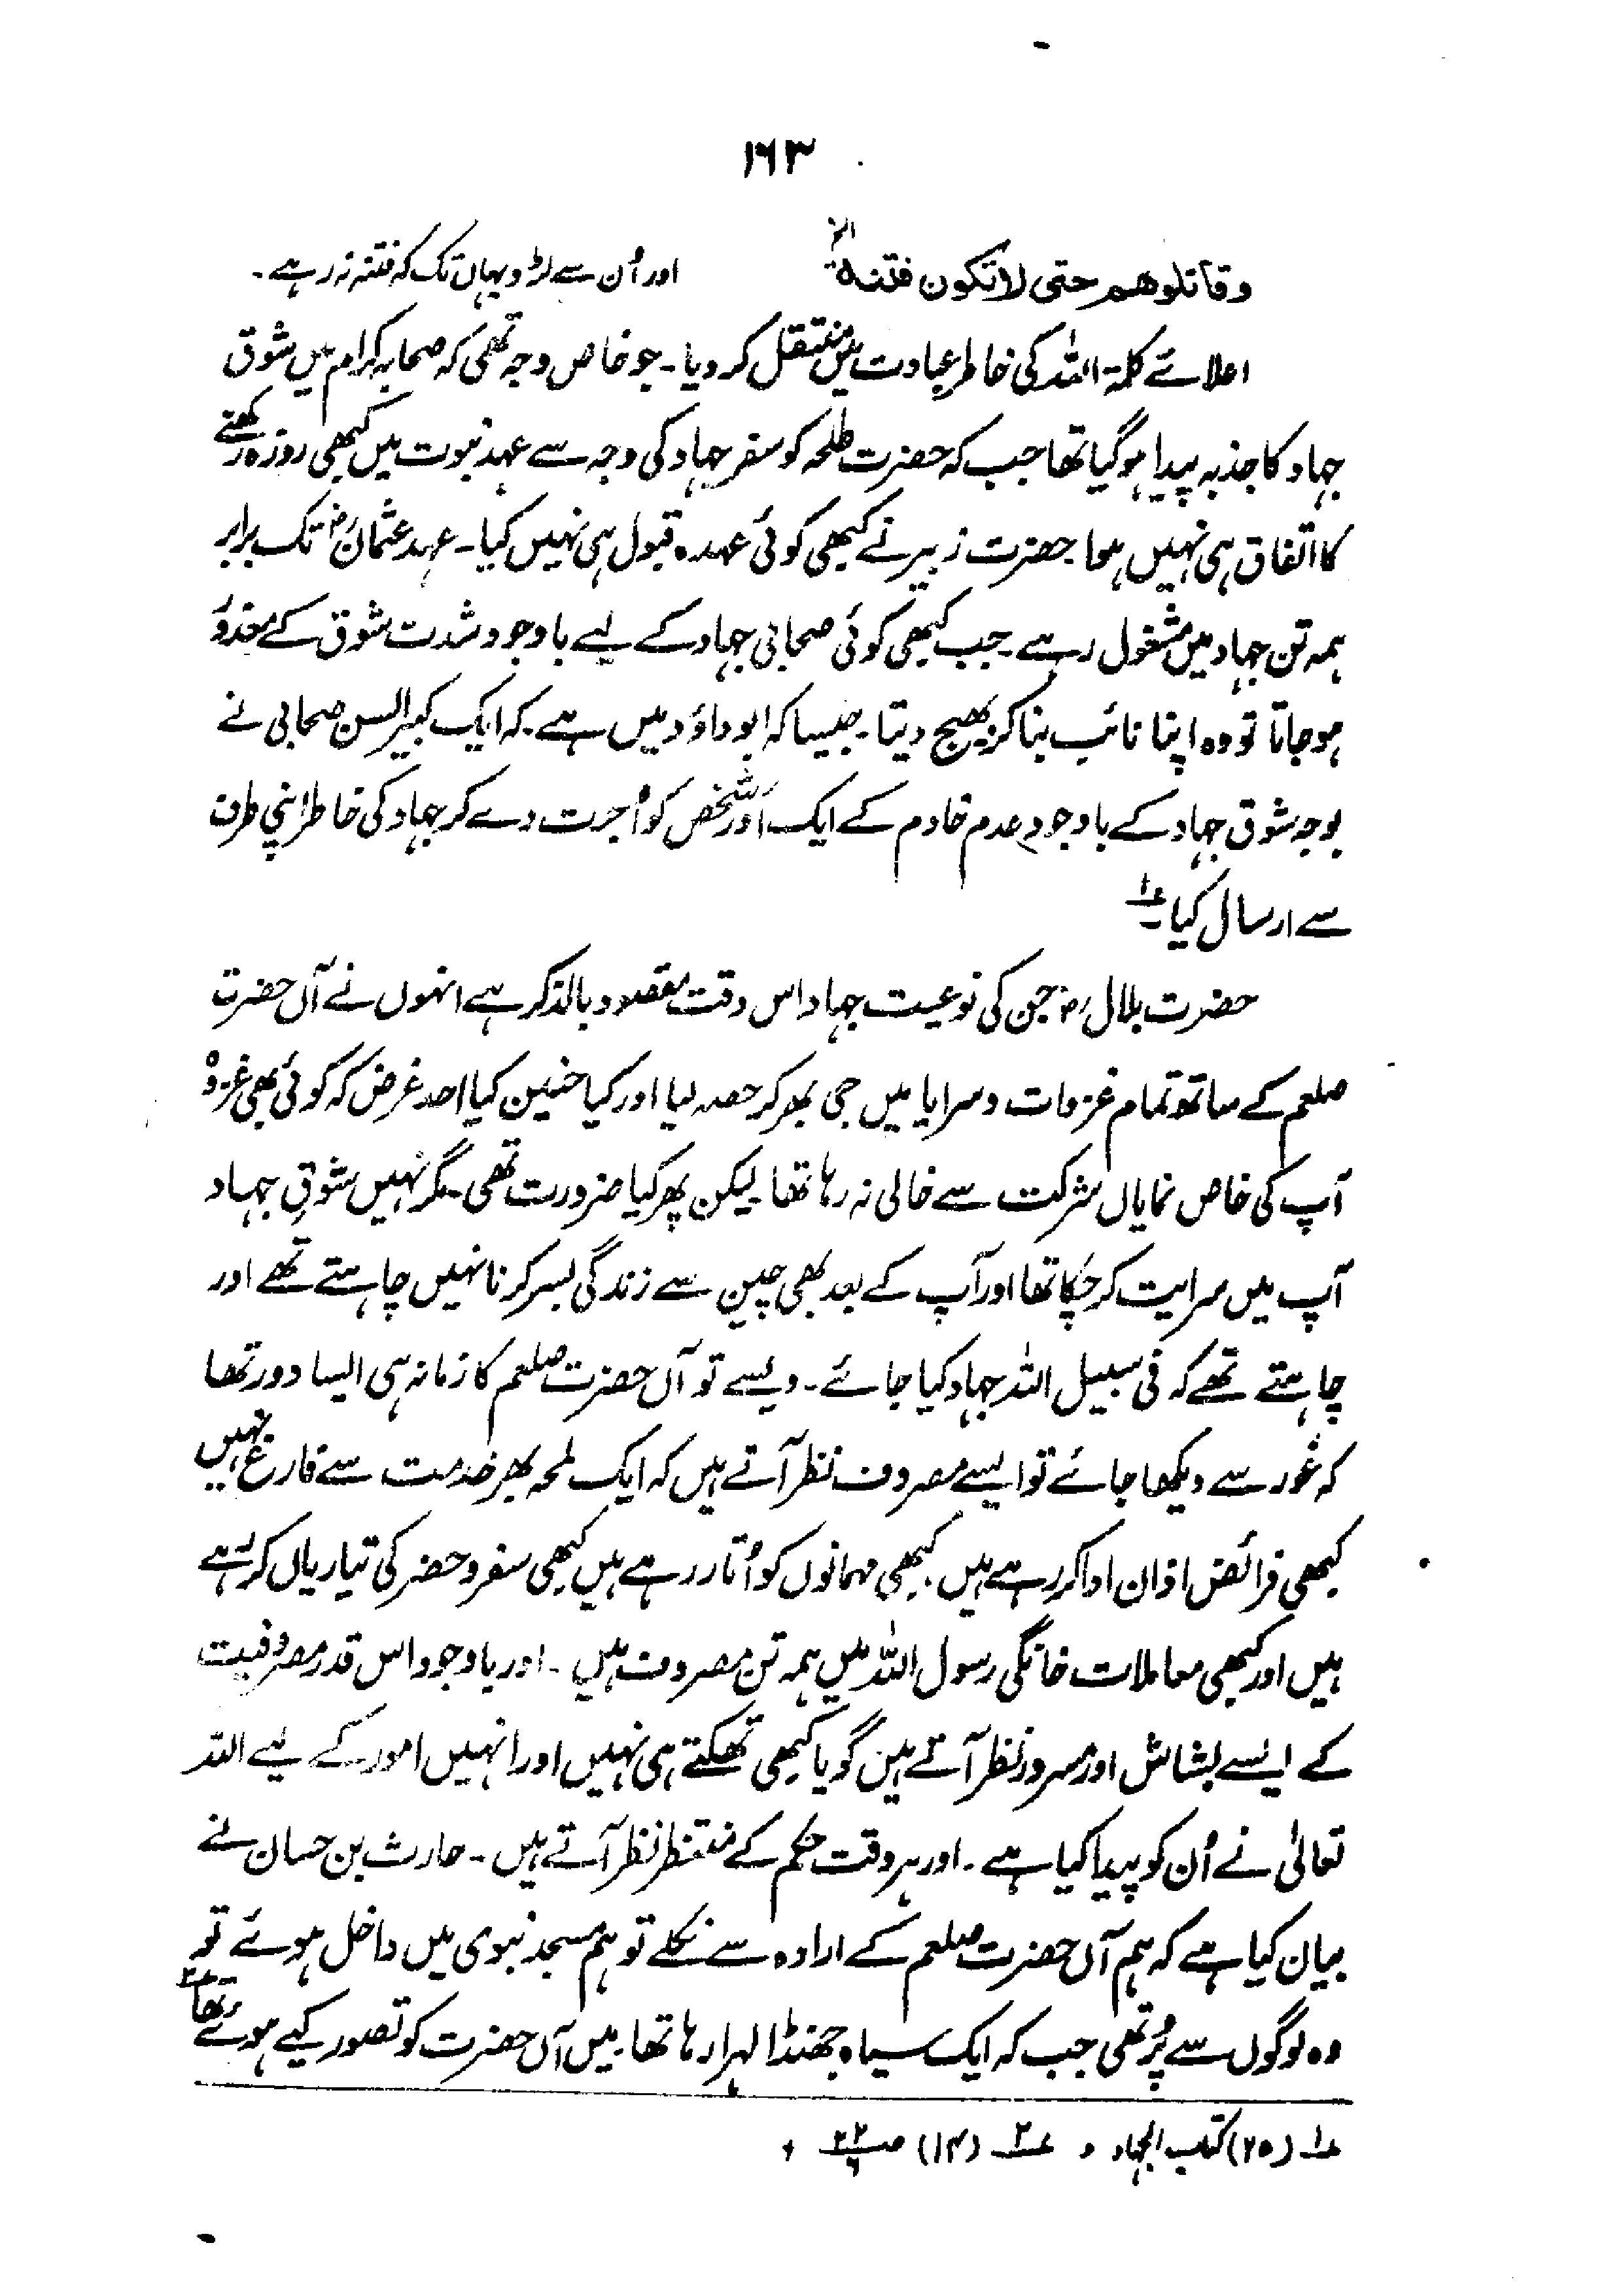 ۱۶۳
وقاتلوهم حتى لا تكون فتنة الخ اور اُن سے لڑو یہاں تک کہ فتنہ نہ رہے۔
اعلائے کلمۃ اللہ کی خاطر عبادت میں منتقل کر دیا۔ جو خاص وجہ تھی کہ صحابہ کرام میں شوق
جہاد کا جذبہ پیدا ہو گیا تھا جب کہ حضرت طلحہ کو سفر جہاد کی وجہ سے عہد نبوت میں کبھی روزہ رکھنے
کا اتفاق ہی نہیں ہوا۔ حضرت زبیر نے کبھی کوئی عہدہ قبول ہی نہیں کیا۔ عہد عثمانؓ تک برابر
ہمہ تن جہاد میں مشغول رہے۔ جب کبھی کوئی صحابی جہاد کے لیے باوجود شدت شوق کے معذور
ہو جاتا تو وہ اپنا نائب بنا کر بھیج دیتا۔ جیسا کہ ابو داؤد میں ہے۔ کہ ایک کبیر السن صحابی نے
بوجہ شوق جہاد کے باوجودِ عدم خادم کے ایک اَور شخص کو اُجرت دے کر جہاد کی خاطر اپنی طرف
سے ارسال کیا۔ ؏۱
حضرت بلالؓ جن کی نوعیت جہاد اس وقت مقصود بالذکر ہے انہوں نے آں حضرت
صلعم کے ساتھ تمام غزوات و سرایا میں جی بھر کر حصہ لیا اور کیا حنین کیا احد غرض کہ کوئی بھی غزوہ
آپ کی خاص نمایاں شرکت سے خالی نہ رہا تھا۔ لیکن پھر کیا ضرورت تھی۔ مگر نہیں شوقِ جہاد
آپ میں سرایت کر چکا تھا اور آپ کے بعد بھی چین سے زندگی بسر کرنا نہیں چاہتے تھے اور
چاہتے تھے کہ فی سبیل اللہ جہاد کیا جائے۔ ویسے تو آں حضرت صلعم کا زمانہ ہی ایسا دور تھا
کہ غور سے دیکھا جائے تو ایسے مصروف نظر آتے ہیں کہ ایک لمحہ بھر خدمت سے فارغ نہیں
کبھی فرائض اذان ادا کر رہے ہیں۔ کبھی مہمانوں کو اُتار رہے ہیں کبھی سفر و حضر کی تیاریاں کر رہے
ہیں اور کبھی معاملات خانگی رسول اللہ میں ہمہ تن مصروف ہیں۔ اور باوجود اس قدر مصروفیت
کے ایسے بشاش اور مسرور نظر آتے ہیں گویا کبھی تھکتے ہی نہیں اور انہیں امور کے لیے اللہ
تعالیٰ نے اُن کو پیدا کیا ہے۔ اور ہر وقت حکم کے منتظر نظر آتے ہیں۔ حارث بن حسان نے
بیان کیا ہے کہ ہم آں حضرت صلعم کے ارادہ سے نکلے تو ہم مسجد نبوی میں داخل ہوئے تو
وہ لوگوں سے پُر تھی جب کہ ایک سیاہ جھنڈا لہرا رہا تھا۔ میں آں حضرت کو تصور کیے ہوئے تھا ؏۲
؏۱ (۲۵) کتاب الجہاد ، ؏۲ (۱۴) صـ